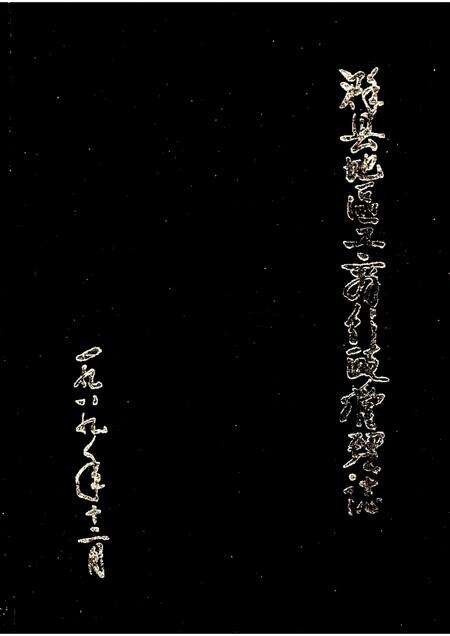 滁县地區工商行政管理志
一九八九年十二月